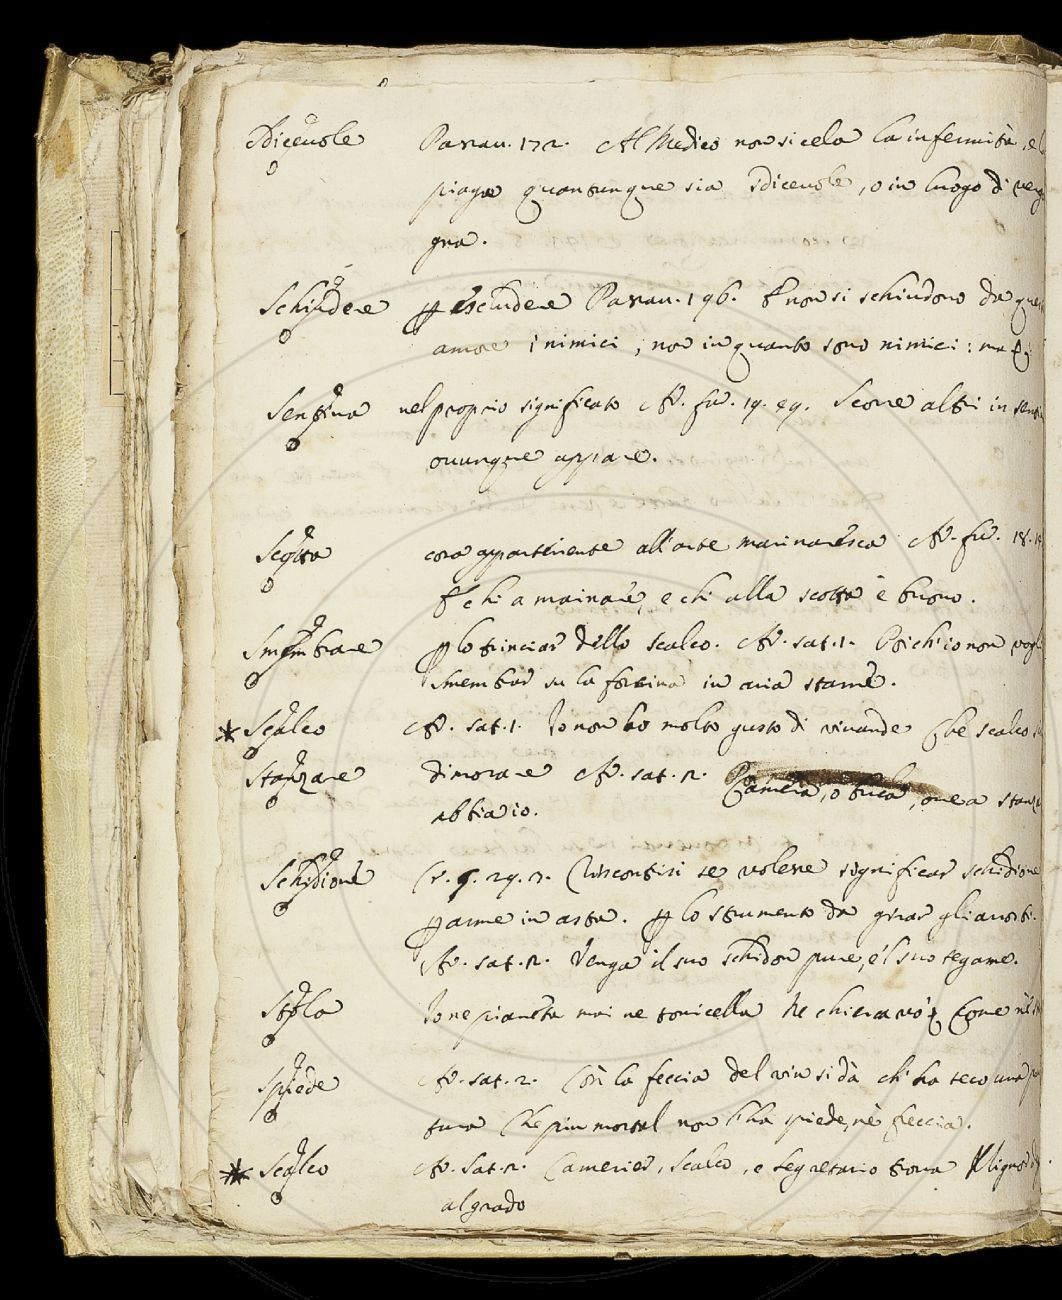 Sdiceuole Passau. 172. Al Medico non si cela la infermità, e la
piaga quantunque sia sdiceuole, o in luogo di verg
gna.
Schiudere p escludere Passau. 196. E non si schiudono da questo
amore i nimici, non in quanto sono nimici: ma
Sentina nel proprio significato Ar. fur. 19. 49. Scorre altri in sentina
ouunque appare.
Scotta cosa appartenente all'arte marinaresca Ar. fur. 18.
E chi a mainare, e chi alla scotta è buono.
Smembrare p lo trinciar dello scalco. Ar. sat. 1. Poich'io non vogli
smembrar su la forcina in aria starne.
* Scalco Ar. sat. 1. Io non ho molto gusto di viuande Che scalco
Stanzare dimorare Ar. sat. 2. Camera, o buca, oue a stanzar
abbia io.
Schidione Cr. 9. 29. 3. Conscontisi se volesse significar schidione
p arme in asta. p lo strumento da girar gli arosti.
Ar. sat. 2. Venga il suo schidon pure, e 'l suo tegame.
Stola Io nè pianeta mai nè tonicella Nè chierca vò Come
Spiede Ar. sat. 2. Con la feccia del vin si dà ch'ha seco una
tura Che più mortal non l'ha spiede, nè freccia.
* Scalco Ar. Sat. 2. Camerier, scalco, e segretario troua Il signor
al grado